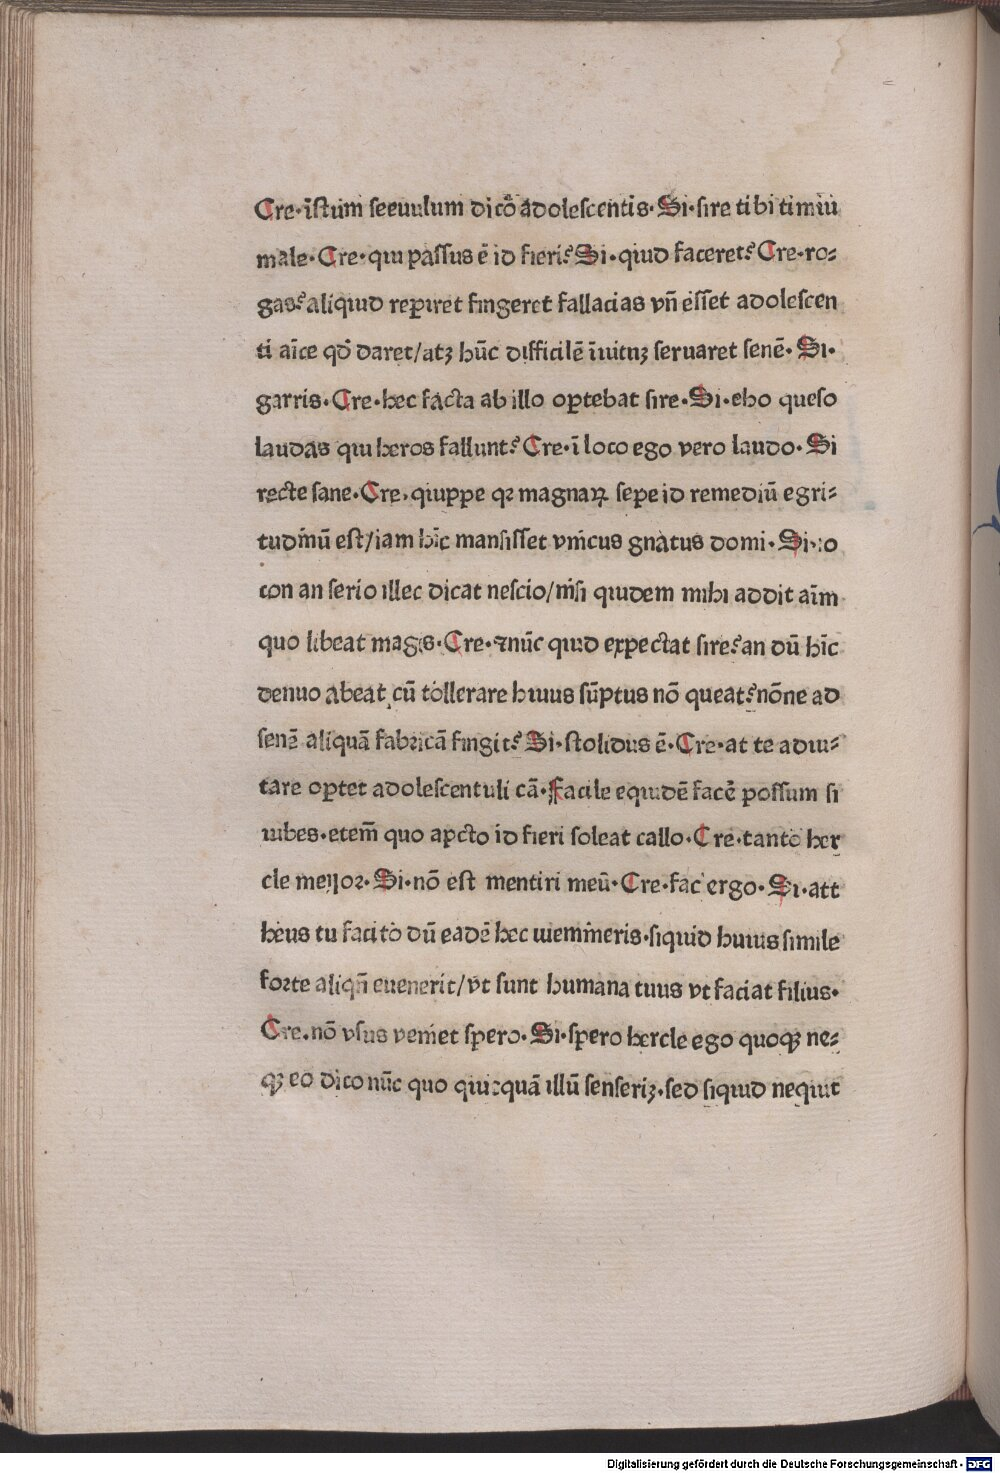 Cre·īstum seruulum dicō adolescentis·Si·sire tibi timiū
male·Cre·qui passus ē id fieri?Si·quid faceret?Cre·ro⸗
gas?aliquid reperiret fingeret fallacias vn̄ esset adolescen
ti aīce qd daret/atꝫ hūc difficilē īuitūꝫ seruaret senē·Si·
garris·Cre·hec facta ab illo oꝑtebat sire·Si·eho queso
laudas qui heros fallunt?Cre·ī loco ego vero laudo·Si
recte sane·Cre·quippe qꝛ magnaꝝ sepe id remediū egri⸗
tudinū est/iam hīc mansisset vnicus gnatus domi·Si·io
con an serio illec dicat nescio/nisi quidem mihi addit aīm
quo libeat magis·Cre·⁊nūc quid expectat sire?an dū hīc
denuo abeat cū tollerare huius sūptus nō queat?nōne ad
senē aliquā fabricā fingit?Si·stolidus ē·Cre·at te adiu⸗
tare oꝑtet adolescentuli cā·Facile equidē facē possum si
iubes·etem̄ quo apcto id fieri soleat callo·Cre·tanto her
cle meijor·Si·nō est mentiri meū·Cre·fac ergo·Si·att
heus tu facito dū eadē hec memineris·siquid huius simile
forte aliqn̄ euenerit/vt sunt humana tuus vt faciat filius·
Cre·nō vsus veniet spero·Si·spero hercle ego quoqꝫ ne⸗
qꝫ eo dico nūc quo quicquā illū senseriꝫ·sed siquid nequit
Digitalisierung gefördert durch die Deutsche Forschungsgemeinschaft - DFG